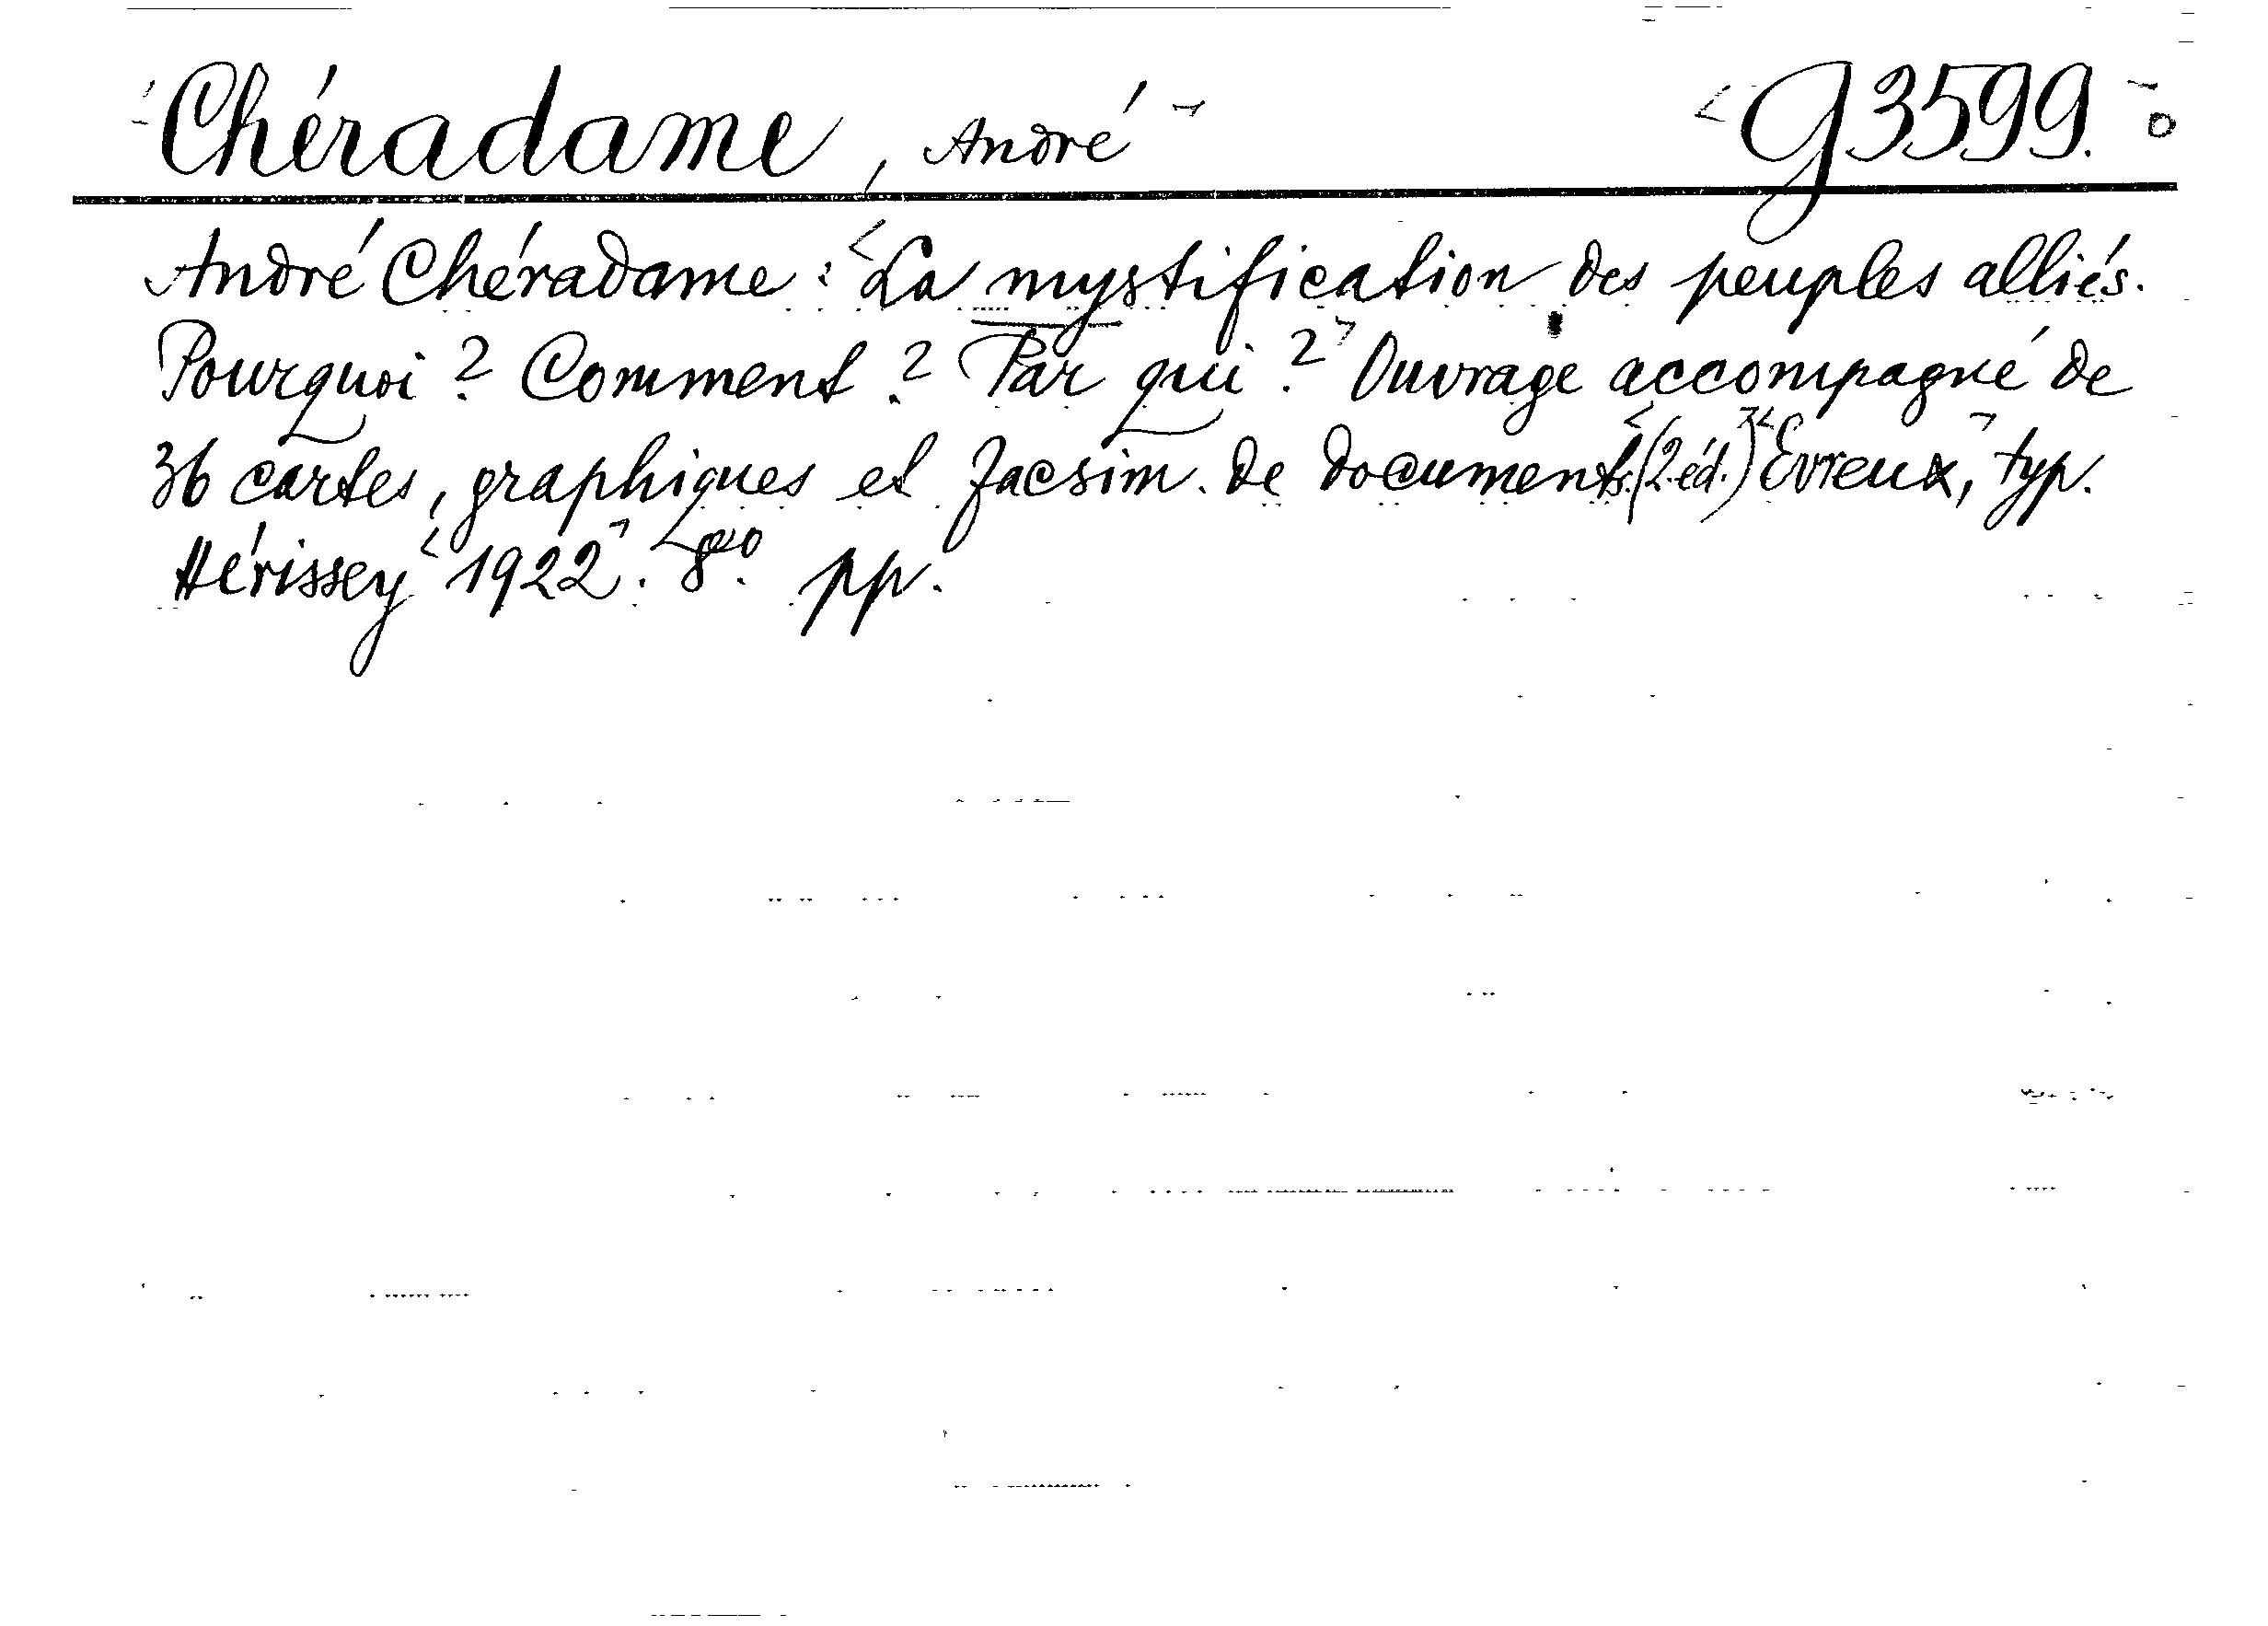 Chéradame, André G 3599.
André Chéradame: La mystification des peuples alliés.
Pourquoi? Comment? Par qui? Ouvrage accompagné de
36 cartes, graphiques et facsim. de documents. (2.éd.) Evreux, typ.
Hérissey 1922. 8vo. pp.